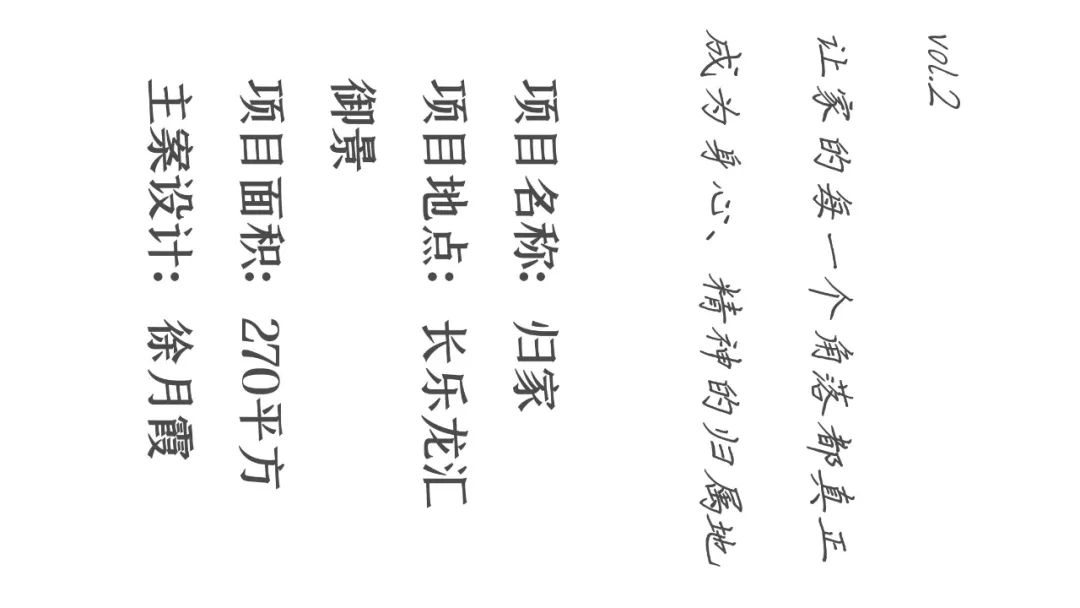 vol.2
让家的每一个角落都真正
成为身心、精神的归属地
项目名称: 归家
项目地点: 长乐龙汇
御景
项目面积: 270平方
主案设计: 徐月霞